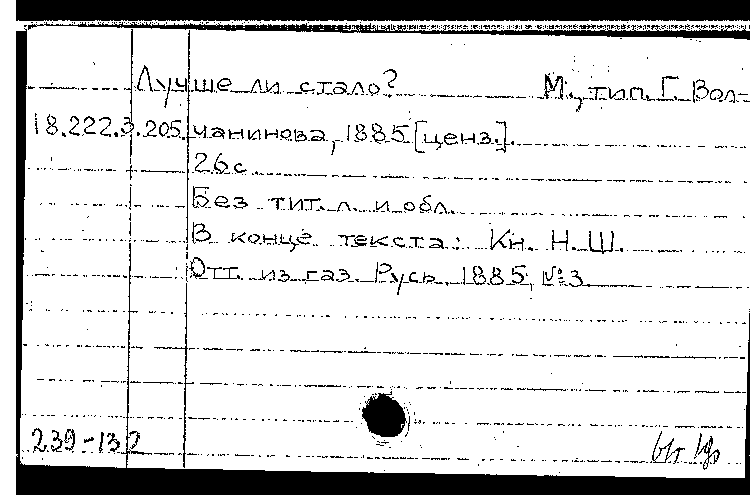 Лучше ли стало? М., тип. Г. Вол-
18.222.3.205. чанинова, 1885 [ценз.].
26с.
Без тит. л. и обл.
В конце текста: Кн. Н. Ш.
Отт. из газ. Русь, 1885, №3.
239-132